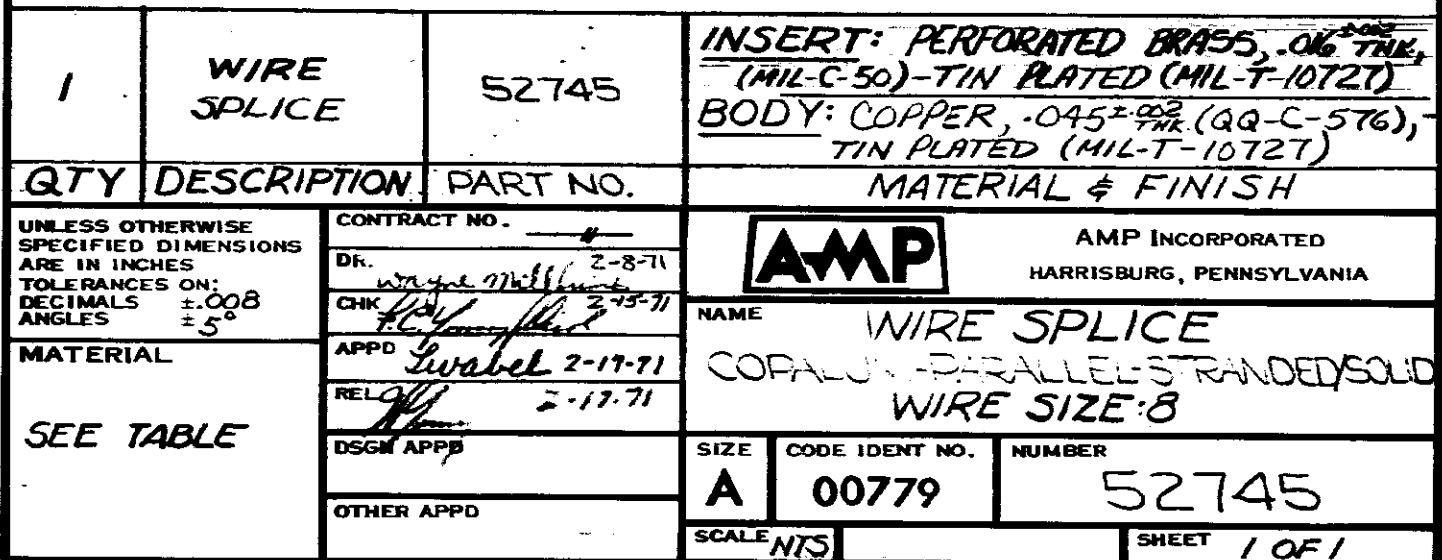 1
WIRE
SPLICE
52745
INSERT: PERFORATED BRASS, .016 ±.002 THK,
(MIL-C-50)-TIN PLATED (MIL-T-10727)
BODY: COPPER, .045±.002 THK. (QQ-C-576),
TIN PLATED (MIL-T-10727)
QTY DESCRIPTION PART NO. MATERIAL & FINISH
UNLESS OTHERWISE
SPECIFIED DIMENSIONS
ARE IN INCHES
TOLERANCES ON:
DECIMALS ±.008
ANGLES ±5°
MATERIAL
SEE TABLE
CONTRACT NO.
DR. Wayne 2-8-71
CHK 2-15-71
APPD 2-17-71
REL 2-17-71
DSGN APPD
OTHER APPD
AMP
AMP INCORPORATED
HARRISBURG, PENNSYLVANIA
NAME
WIRE SPLICE
COPALUM-PARALLEL-STRANDED/SOLID
WIRE SIZE:8
SIZE
A
CODE IDENT NO.
00779
NUMBER
52745
SCALE NTS
SHEET 1 OF 1